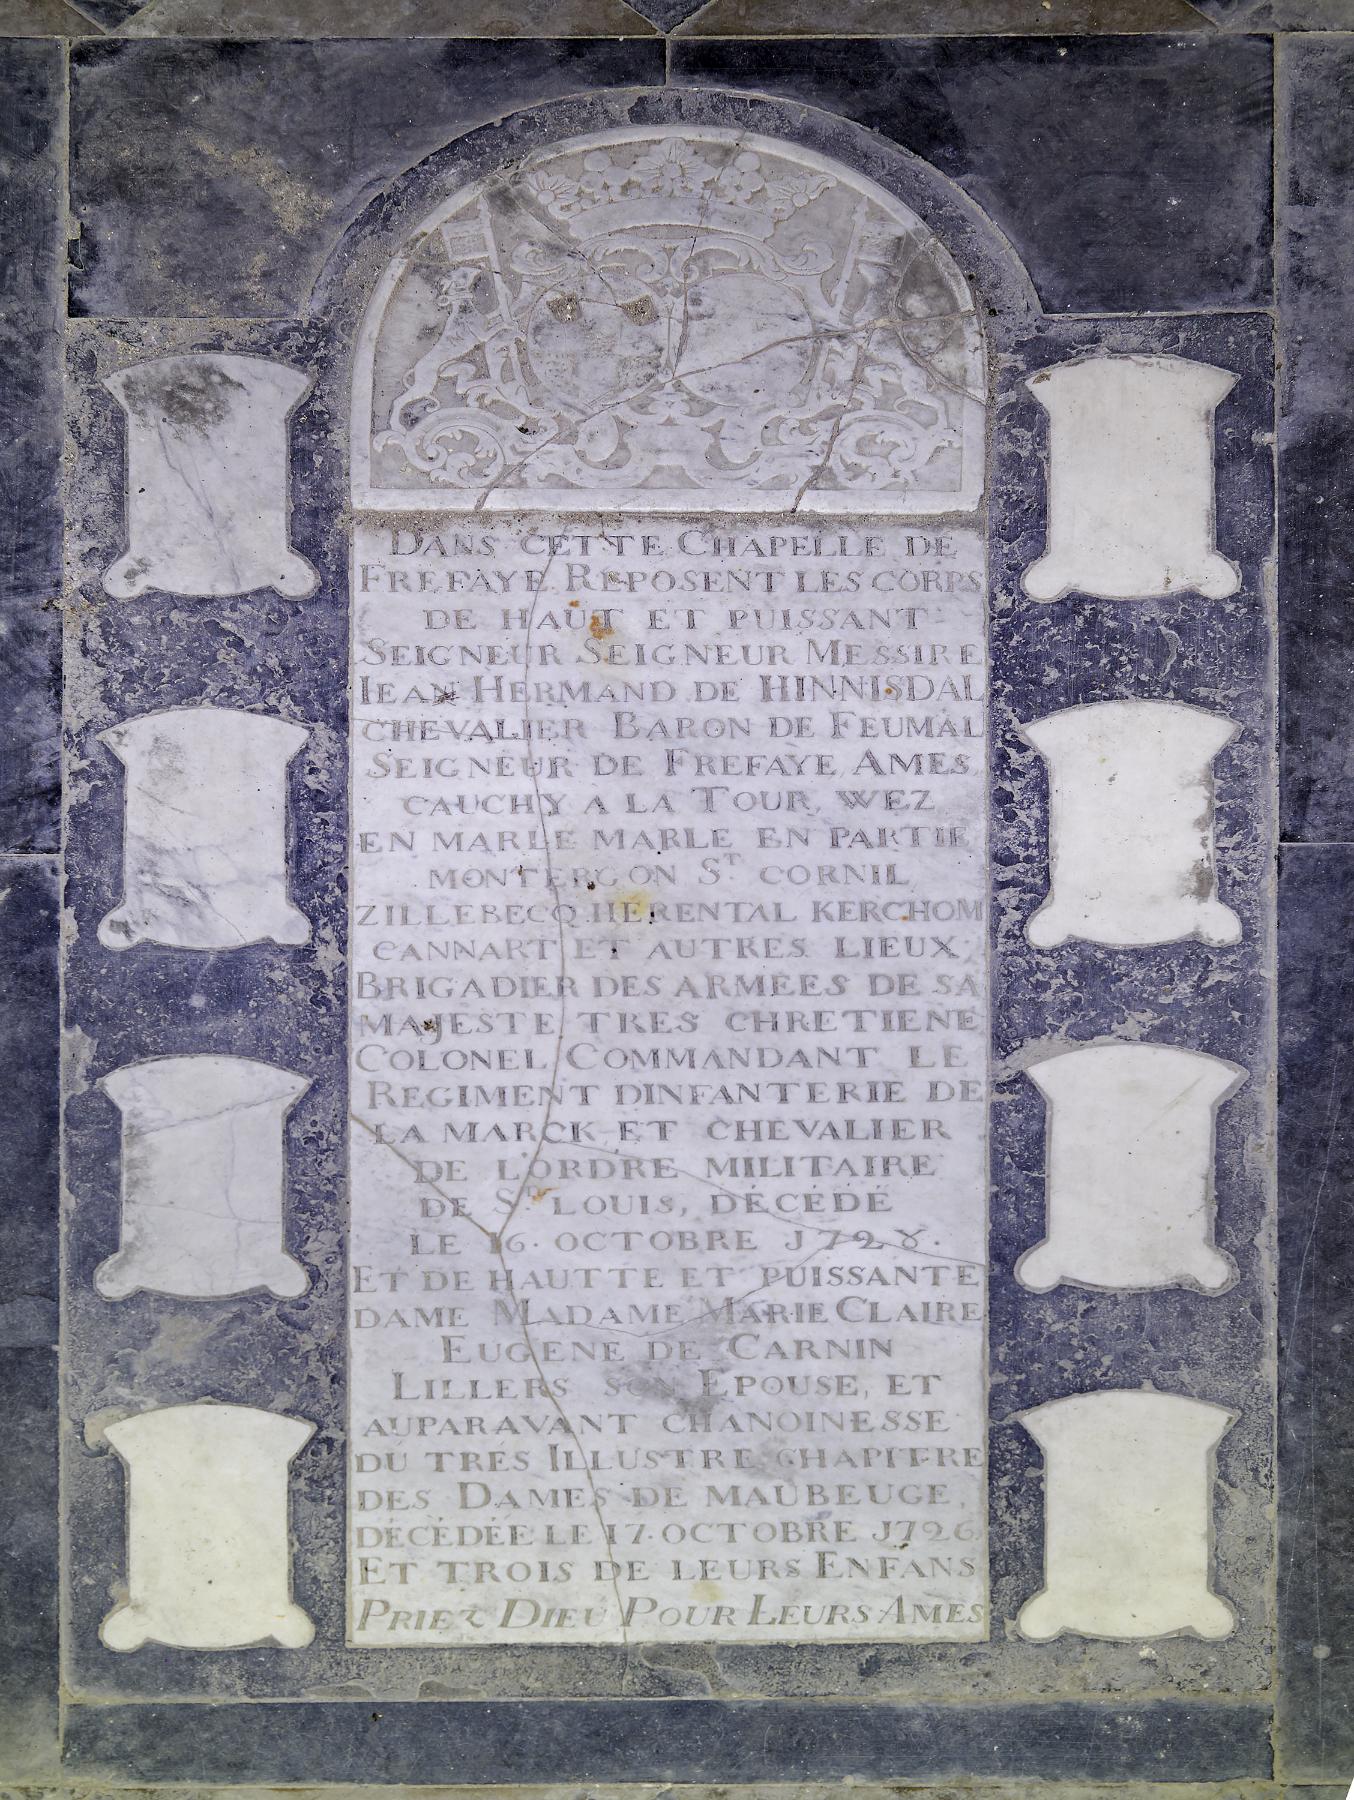 DANS CETTE CHAPELLE DE
FREFAYE REPOSENT LES CORPS
DE HAUT ET PUISSANT
SEIGNEUR SEIGNEUR MESSIRE
IEAN HERMAND DE HINNISDAL
CHEVALIER BARON DE FEUMAL
SEIGNEUR DE FREFAYE, AMES,
CAUCHY A LA TOUR, WEZ
EN MARLE MARLE EN PARTIE
MONTERGON ST. CORNIL
ZILLEBECQ HERENTAL KERCHOM
CANNART ET AUTRES LIEUX,
BRIGADIER DES ARMEES DE SA
MAJESTE TRES CHRETIENE
COLONEL COMMANDANT LE
REGIMENT DINFANTERIE DE
LA MARCK ET CHEVALIER
DE L'ORDRE MILITAIRE
DE ST. LOUIS, DÉCÉDÉ
LE 16. OCTOBRE J728.
ET DE HAUTTE ET PUISSANTE
DAME MADAME MARIE CLAIRE
EUGENE DE CARNIN
LILLERS SON EPOUSE, ET
AUPARAVANT CHANOINESSE
DU TRES ILLUSTRE CHAPITRE
DES DAMES DE MAUBEUGE,
DÉCÉDÉE LE 17. OCTOBRE J726
ET TROIS DE LEURS ENFANS
PRIEZ DIEU POUR LEURS AMES